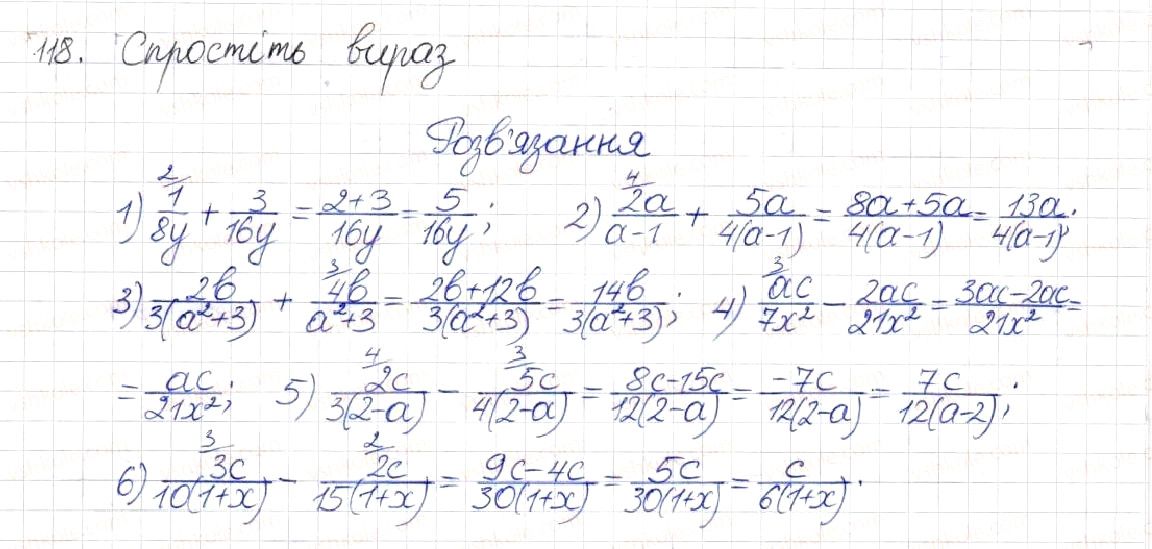 118. Спростіть вираз
Розв'язання
1) 2/ 1/8y + 3/16y = (2+3)/16y = 5/16y; 2) 4/ 2a/(a-1) + 5a/4(a-1) = (8a+5a)/4(a-1) = 13a/4(a-1);
3) 2b/3(a²+3) + 3/ 4b/(a²+3) = (2b+12b)/3(a²+3) = 14b/3(a²+3); 4) 3/ ac/7x² - 2ac/21x² = (3ac-2ac)/21x² =
= ac/21x²; 5) 4/ 2c/3(2-a) - 3/ 5c/4(2-a) = (8c-15c)/12(2-a) = -7c/12(2-a) = 7c/12(a-2);
6) 3/ 3c/10(1+x) - 2/ 2c/15(1+x) = (9c-4c)/30(1+x) = 5c/30(1+x) = c/6(1+x).